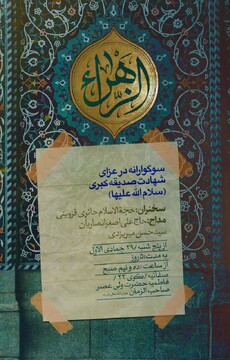 الزهراء
سوگوارانه در عزای
شهادت صدیقه کبری
(سلام الله علیها)
سخنران: حجة الاسلام حائری قزوینی
مداح: حاج علی اصغر انصاریان
سید حسن میریزدی
از پنج شنبه / ۲۹ جمادی الاول
به مدت ۵ روز
از ساعت ۱۰ و نیم صبح
فاطمیه حضرت ولی عصر
صاحب الزمان